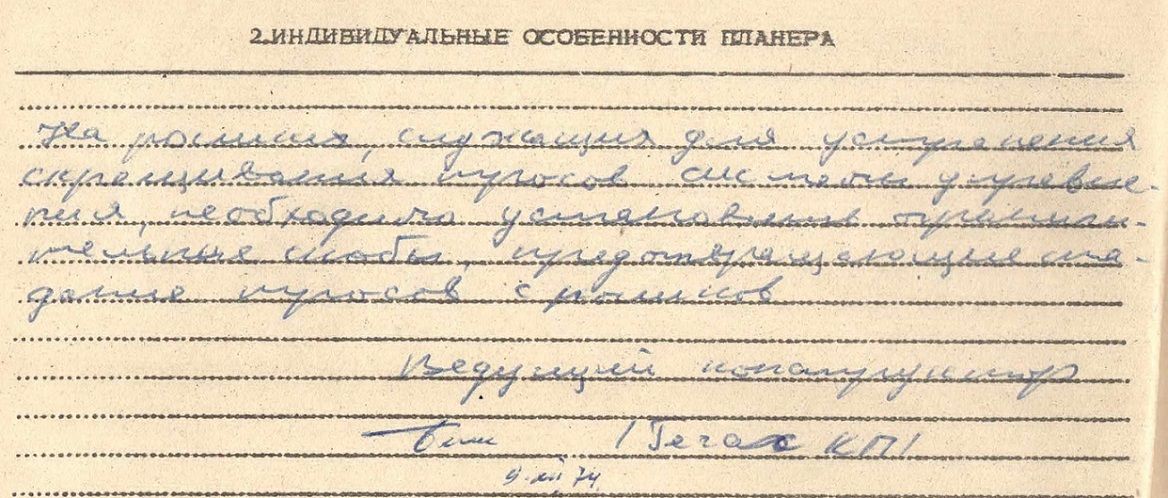 2.ИНДИВИДУАЛЬНЫЕ ОСОБЕННОСТИ ПЛАНЕРА
На ролики, служащих для устранения
скрещивания тросов системы управле-
ния, необходимо установить ограничи-
тельные скобы, предотвращающие спа-
дание тросов с роликов
Ведущий конструктор
/Гечас КП/
9.XII 74